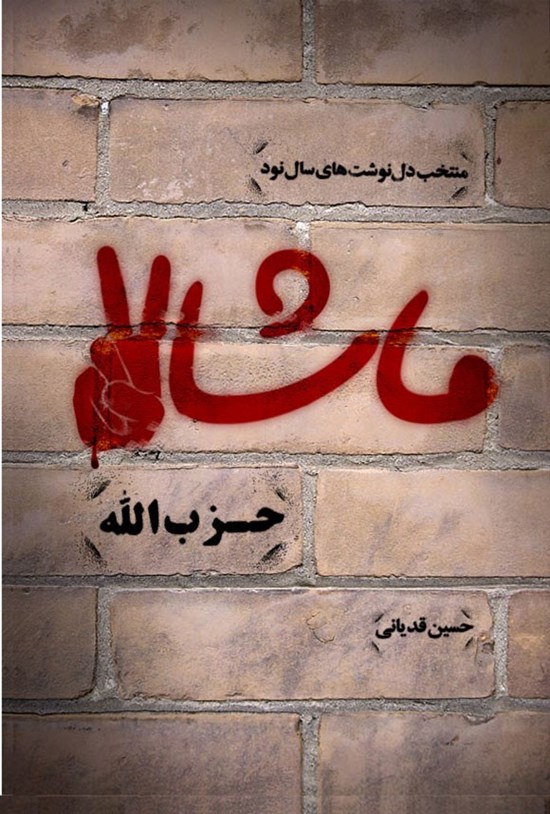 منتخب دل‌نوشت‌های سال نود
ماشالا
حزب‌الله
حسین قدیانی